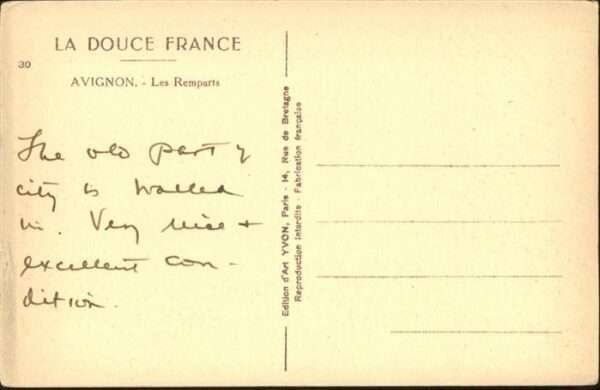 LA DOUCE FRANCE
30
AVIGNON. - Les Remparts
The old part of
city is walled
in. Very nice +
excellent con-
dition.
Edition d'Art YVON, Paris - 14, Rue de Bretagne
Reproduction Interdite - Fabrication française